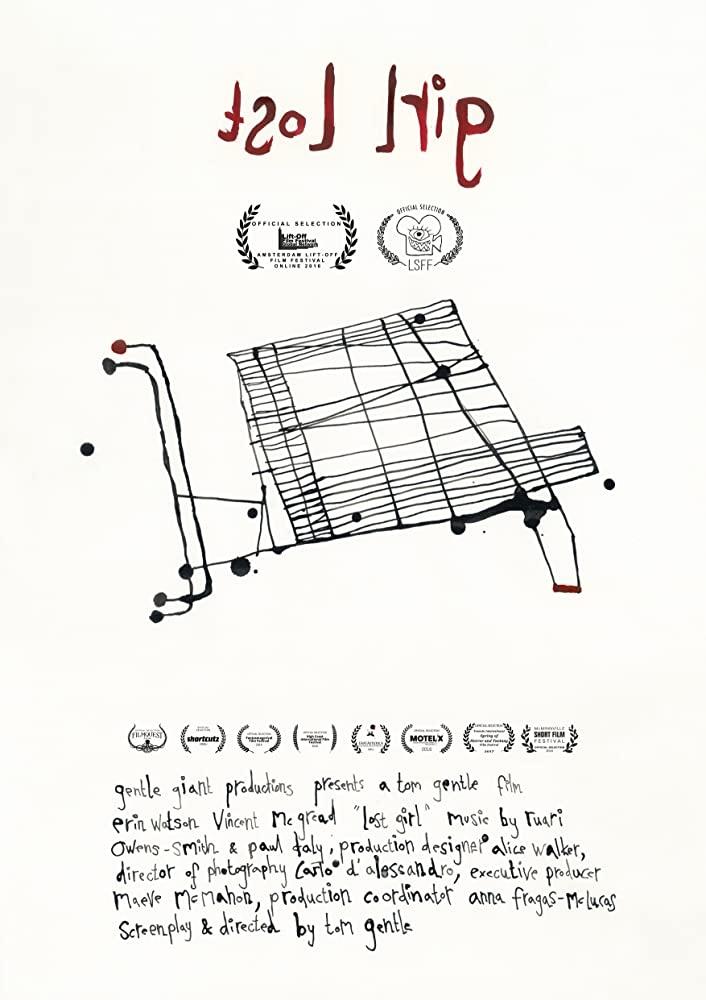 girl Lost
OFFICIAL SELECTION
Lift-Off
AMSTERDAM LIFT-OFF
FILM FESTIVAL
ONLINE 2016
OFFICIAL SELECTION
LSFF
FILMQUEST
shortcutz
MOTELX
SHORT FILM
FESTIVAL
gentle giant productions presents a tom gentle film
erin watson Vincent McGread "lost girl" music by ruari
Owens-Smith & paul daly, production designer alice walker,
director of photography Carlo d'alessandro, executive producer
Maeve McMahon, production coordinator anna fragas-McLucas
Screenplay & directed by tom gentle